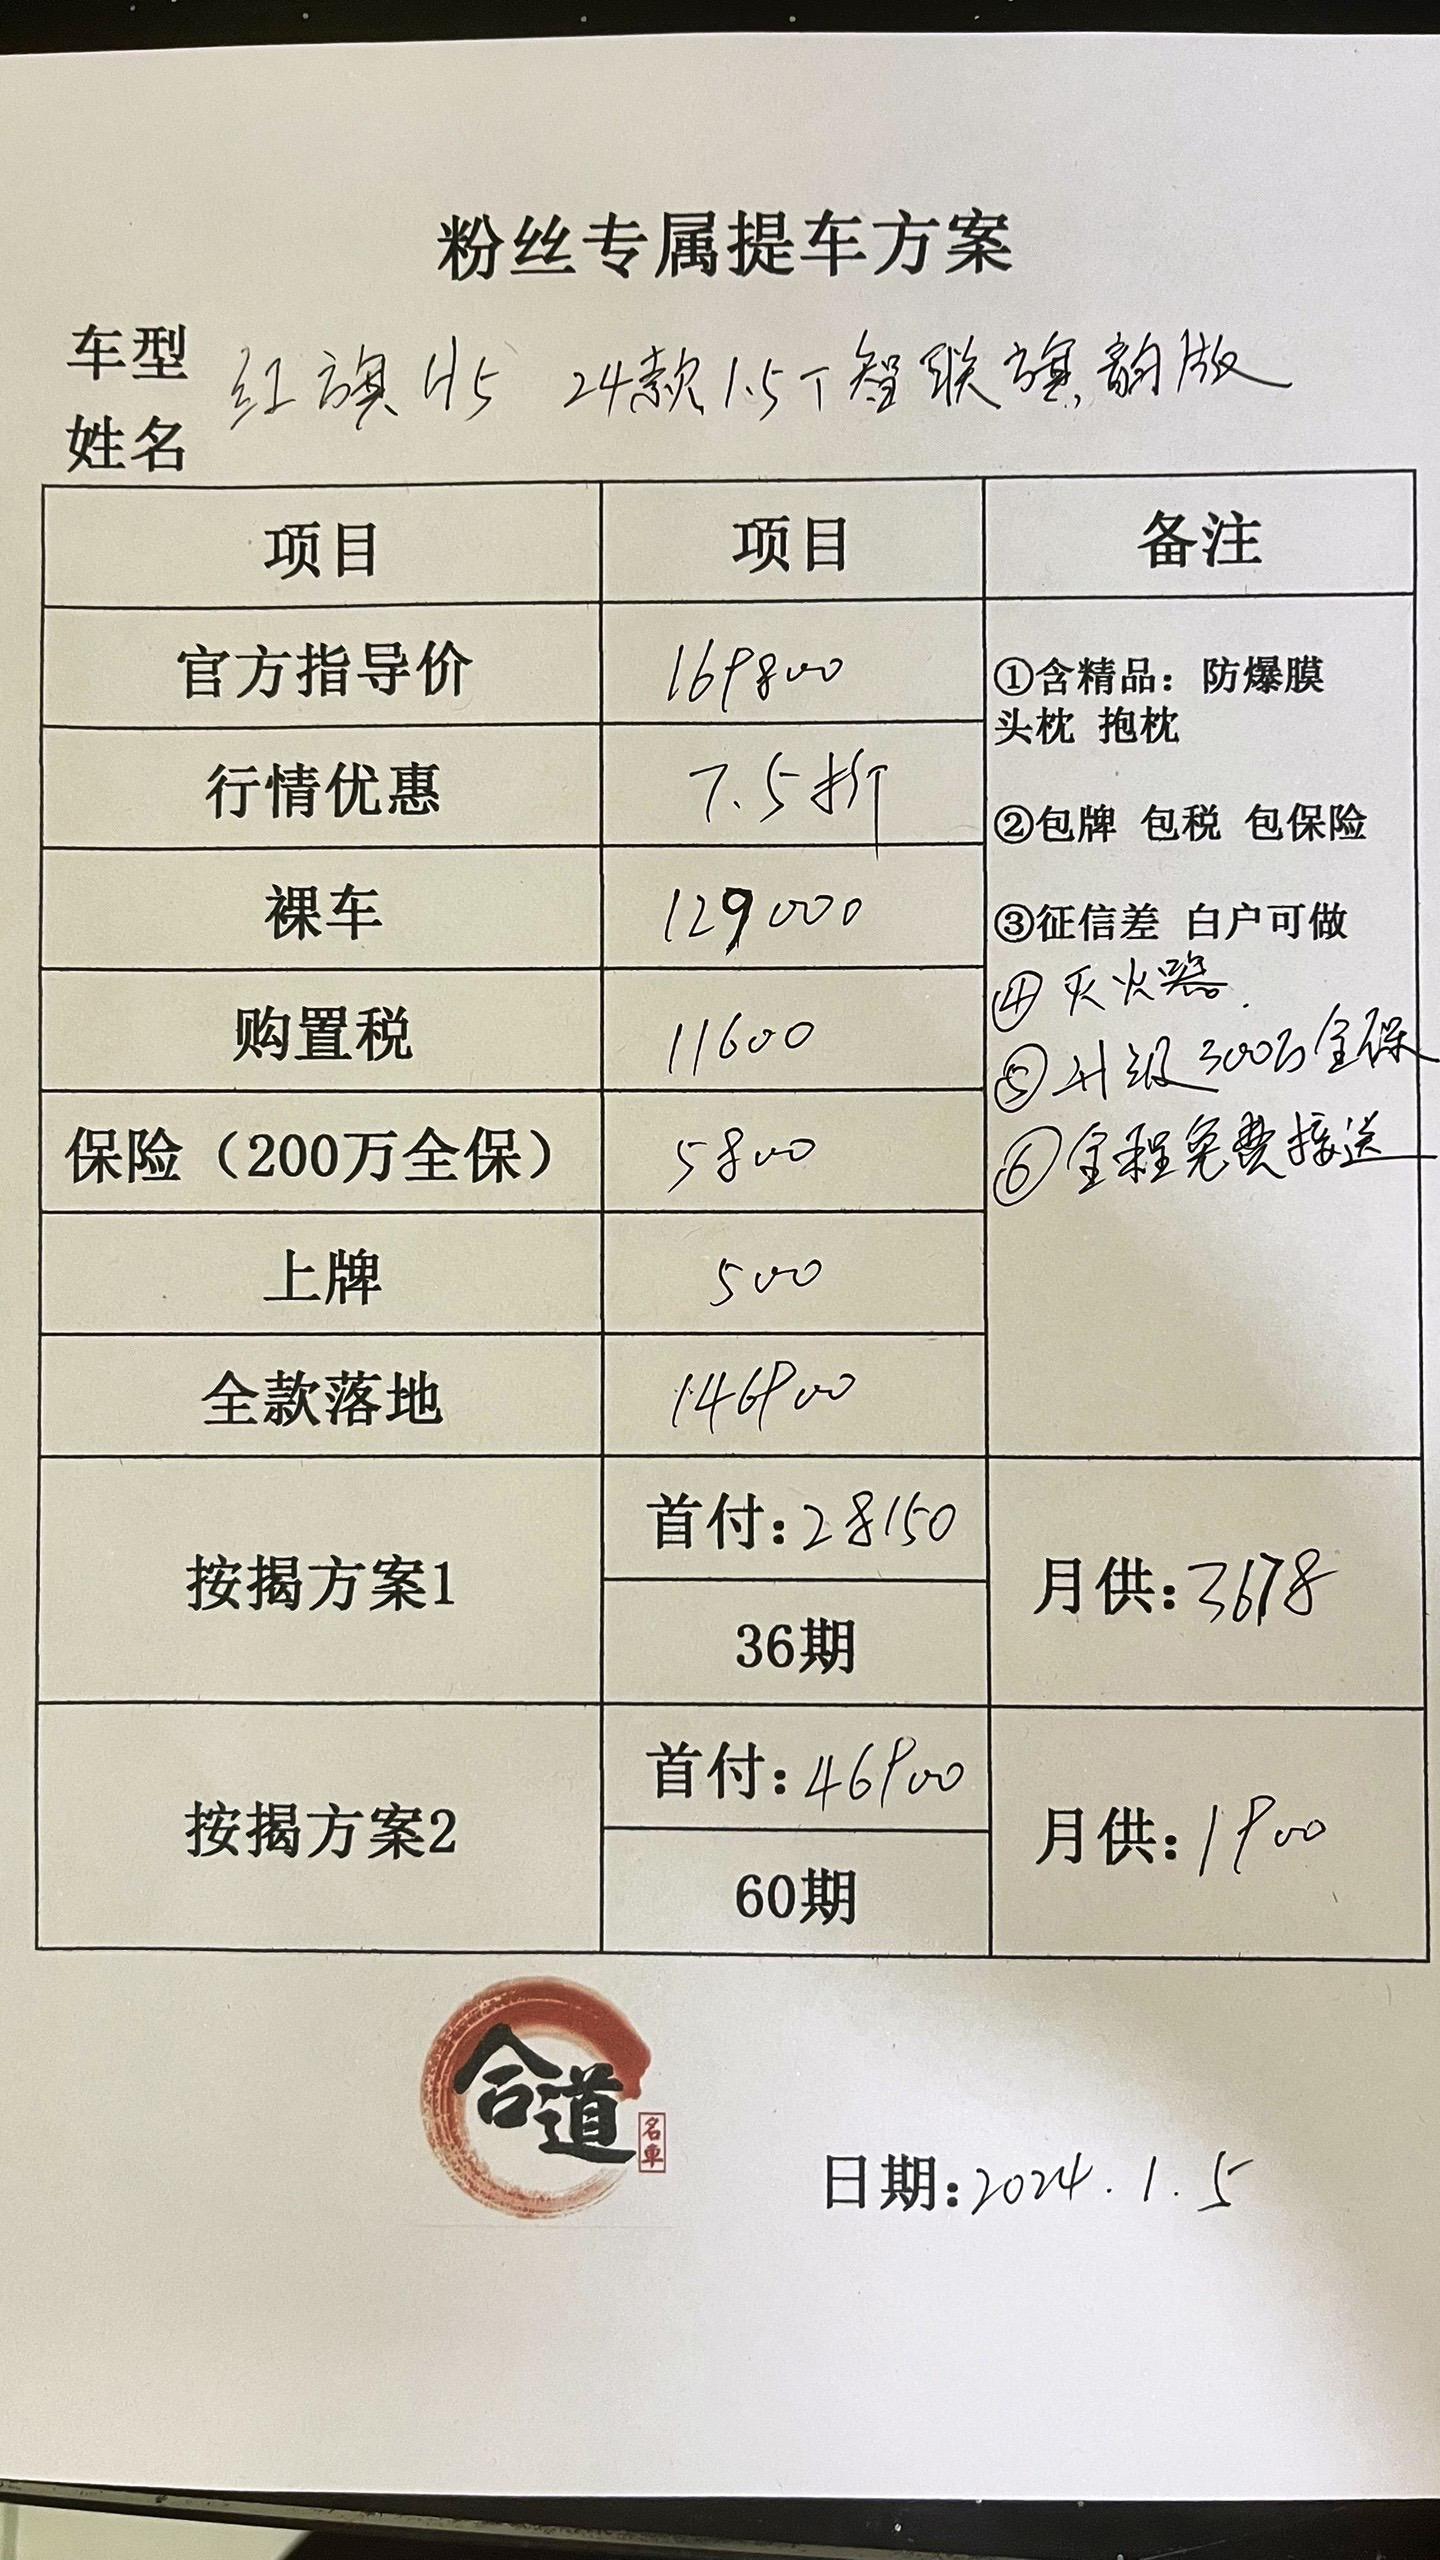 粉丝专属提车方案
车型 红旗H5 24款1.5T智联旗韵版
姓名
项目 项目 备注
官方指导价 169800
①含精品：防爆膜
头枕 抱枕
行情优惠 7.5折
②包牌 包税 包保险
裸车 129000
③征信差 白户可做
④灭火器
购置税 11600
⑤升级300万全保
保险（200万全保） 5800
⑥全程免费接送
上牌 500
全款落地 146900
按揭方案1
首付：28150
36期
月供：3678
按揭方案2
首付：46900
60期
月供：1900
合道
名車
日期：2024.1.5